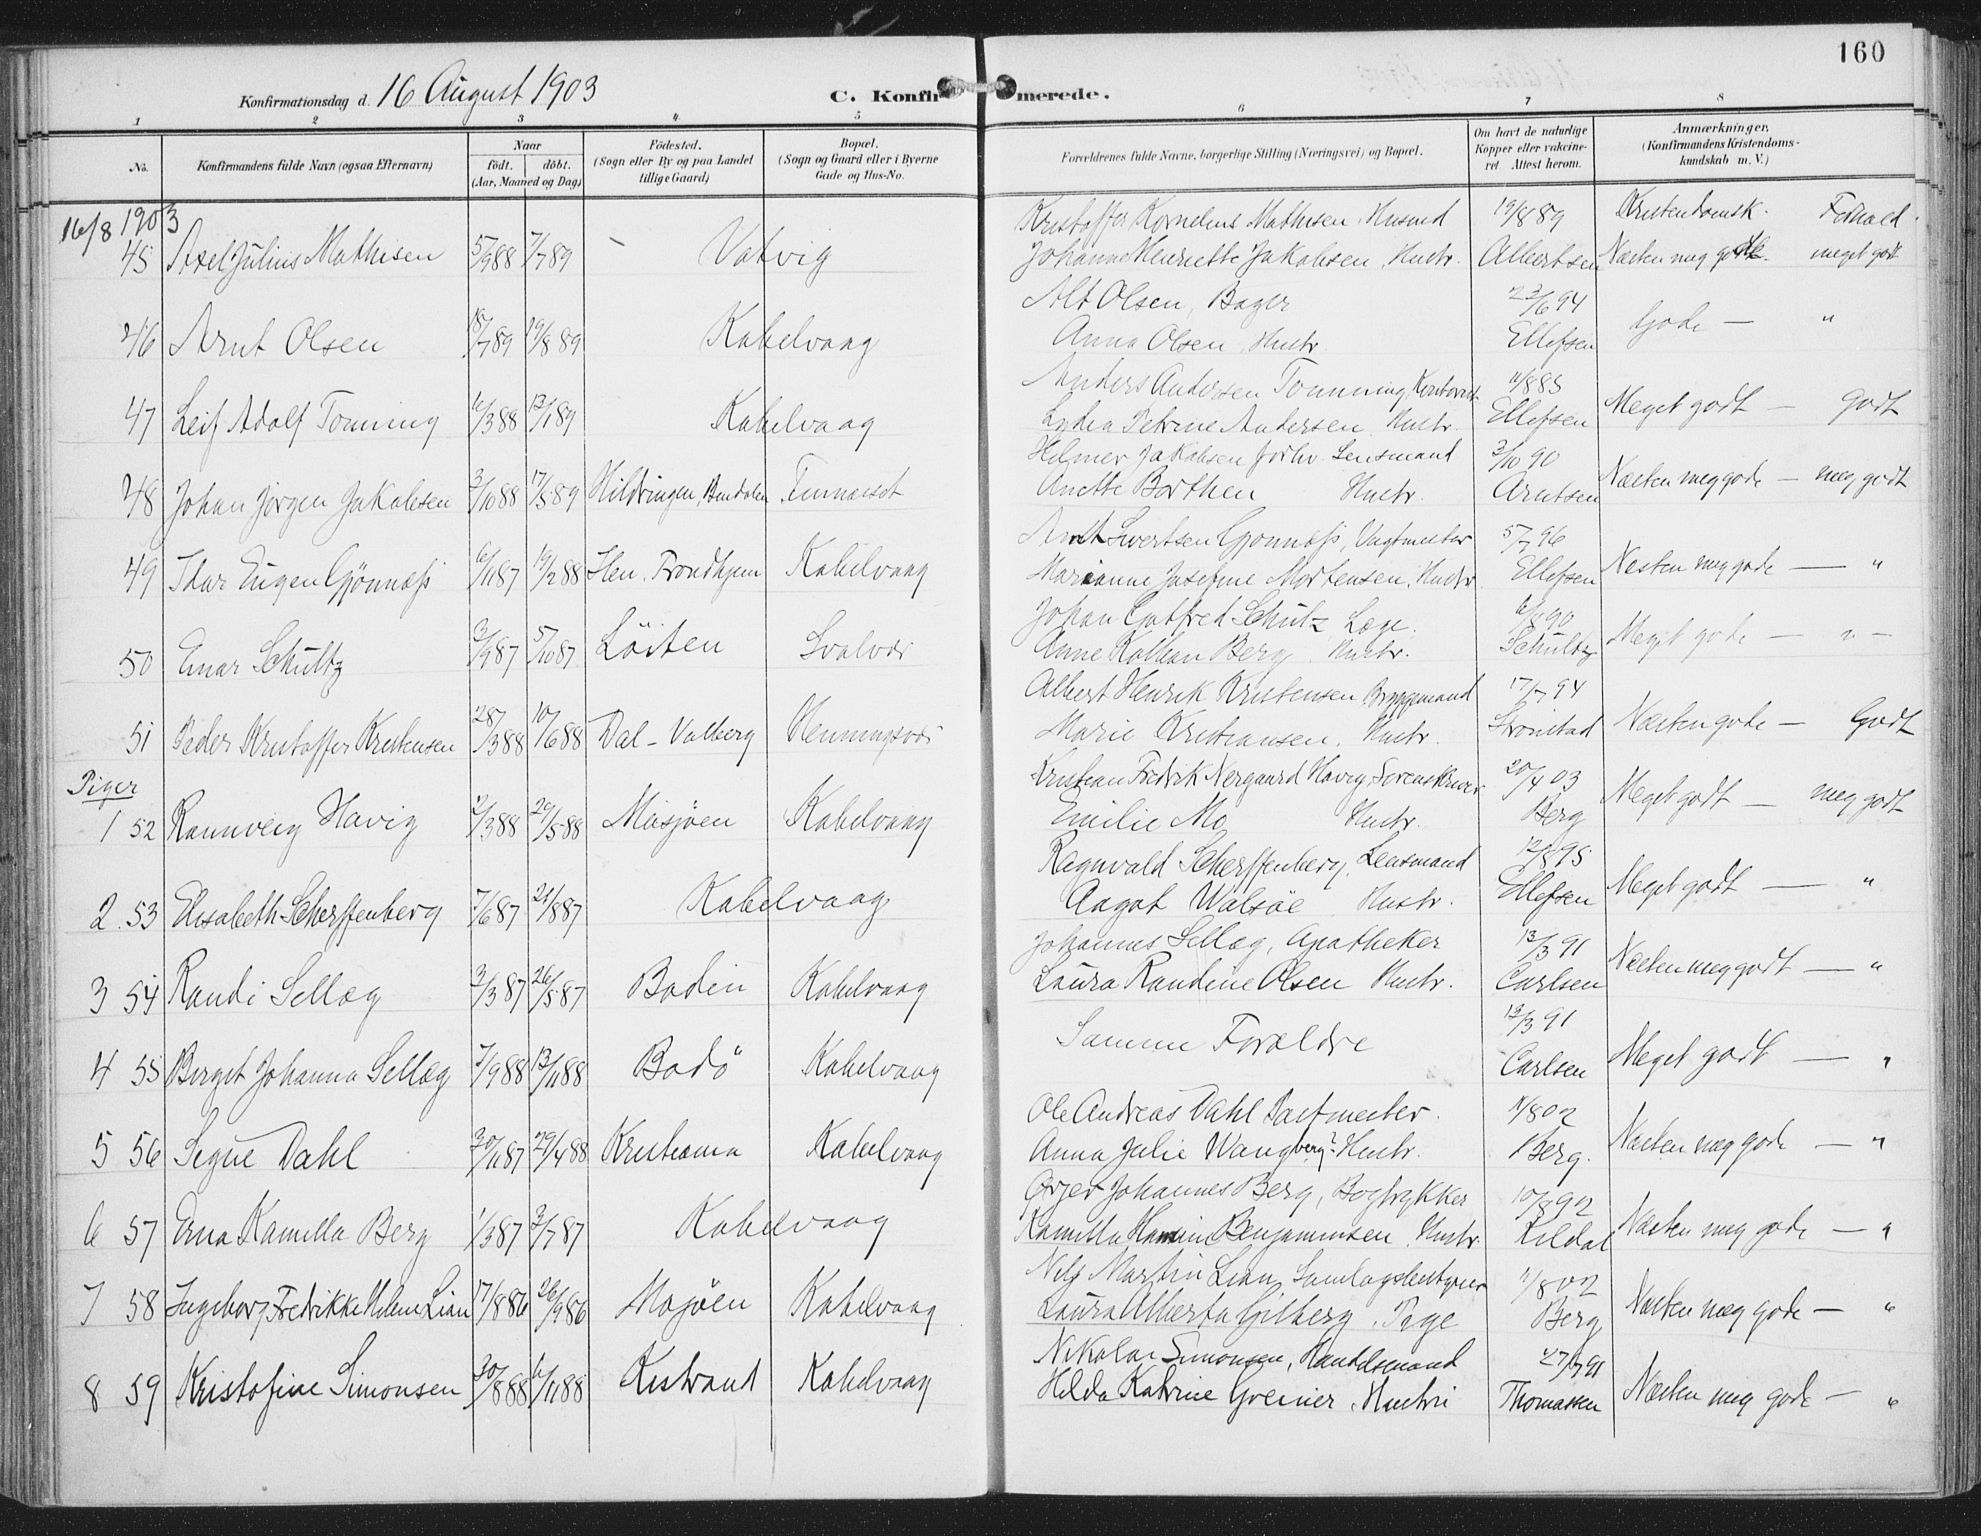 160
Konfirmationsdag d. 16 August 1903 C. Konfirmerede.
1 2 3 4 5 6 7 8
No. Konfirmandens fulde Navn (ogsaa Efternavn) Naar födt. döbt. (Aar, Maaned og Dag) Födested. (Sogn eller By og paa Landet tillige Gaard) Bopæl. (Sogn og Gaard eller i Byerne Gade og Hus-No. Forældrenes fulde Navne, borgerlige Stilling (Næringsvei) og Bopæl. Om havt de naturlige Kopper eller vakcineret. Attest herom. Anmærkninger. (Konfirmandens Kristendomskundskab m. V.)
16/8 1903 Kristoffer Kornelius Mathisen, Husmd 19/8 89 Kristendomsk. Forhold
45 Axel Julius Mathisen 5/9 88 7/7 89 – Vatvig Johanna Henriette Jakobsen, Hustr. Albertsen Næsten meg gode. meget godt
Alt Olsen, Bager 23/6 94
46 Arnt Olsen 18/7 89 19/8 89 Kabelvaag Anna Olsen, Hustr. Ellefsen Gode — "
Anders Andersen Tonning, Kontorist 11/8 85
47 Leif Adolf Tonning 4/3 88 13/1 89 Kabelvaag Lydia Petrine Andersen Hustr. Ellefsen Meget godt — Godt
Hilmer Jakobsen forhv. Lensmand 3/10 90
48 Johan Jörgen Jakobsen 3/10 88 17/5 89 Hildringen, Bindalen Finnæset Anette Borthen Hustr. Arntsen Næsten meg gode — meg godt
Arnt Sivertsen Gjönnæss, Vagtmester 5/7 96
49 Thor Eugen Gjönnæss 6/11 87 19/2 88 Ilen, Trondhjem Kabelvaag Marianne Josefine Mortensen, Hustr. Ellefsen Næsten meg gode — "
Johan Gotfred Schultz Læge. 6/8 90
50 Einar Schultz 3/9 87 5/10 87 Löiten Svolvær Anne Kathan Berg Hustr. Schultz Meget gode — " —
Albert Henrik Kristensen, Bryggemand 17/7 94
51 Peder Kristoffer Kristensen 28/3 88 10/6 88 Dal - Valberg Henningsvær Marie Kristiansen, Hustr. Strömstad Næsten gode — Godt
Piger Kristian Fredrik Nergaard Havig, Sorenskriver 20/4 03
1 52 Rannveig Havig 2/3 88 29/5 88 Mosjöen Kabelvaag Emilie Mo Hustr. Berg Meget godt — meg godt
Ragnvald Scherffenberg, Lensmand 12/8 95
2 53 Elisabeth Scherffenberg 7/6 87 21/8 87 Kabelvaag Aagot Walsöe Hustr. Ellefsen Meget godt — "
Johannes Sellæg, Apotheker 13/3 91
3 54 Randi Sellæg 3/3 87 26/5 87 Bodin Kabelvaag Laura Randine Olsen Hustr. Carlsen Næsten meg godt — "
13/3 91
4 55 Berget Johanna Sellæg 7/9 88 13/11 88 Bodö Kabelvaag Samme Forældre Carlsen Meget godt — "
Ole Andreas Dahl Postmester. 11/8 02
5 56 Signe Dahl 30/11 87 29/4 88 Kristiania Kabelvaag Anna Julie Wangberg, Hustr. Berg. Næsten meg gode — "
Örjer Johannes Berg, Bogtrykker 10/8 92
6 57 Erna Kamilla Berg 1/3 87 3/7 87 Kabelvaag Kamilla Hansine Benjaminsen, Hustr. Kildal Næsten meg gode — "
Nils Martin Lian, Samlagsbestyrer 11/8 02
7 58 Ingeborg Fredrikke Helene Lian 17/8 86 26/9 86 Mosjöen Kabelvaag Laura Alberta Gilberg, Pige Berg Næsten meg gode — "
Nikolai Simonsen, Handelsmand 27/7 91
8 59 Kristofine Simonsen 30/8 88 6/11 88 Kistrand Kabelvaag Hilda Katrine Greiner, Hustru Thomassen Næsten meg gode — "